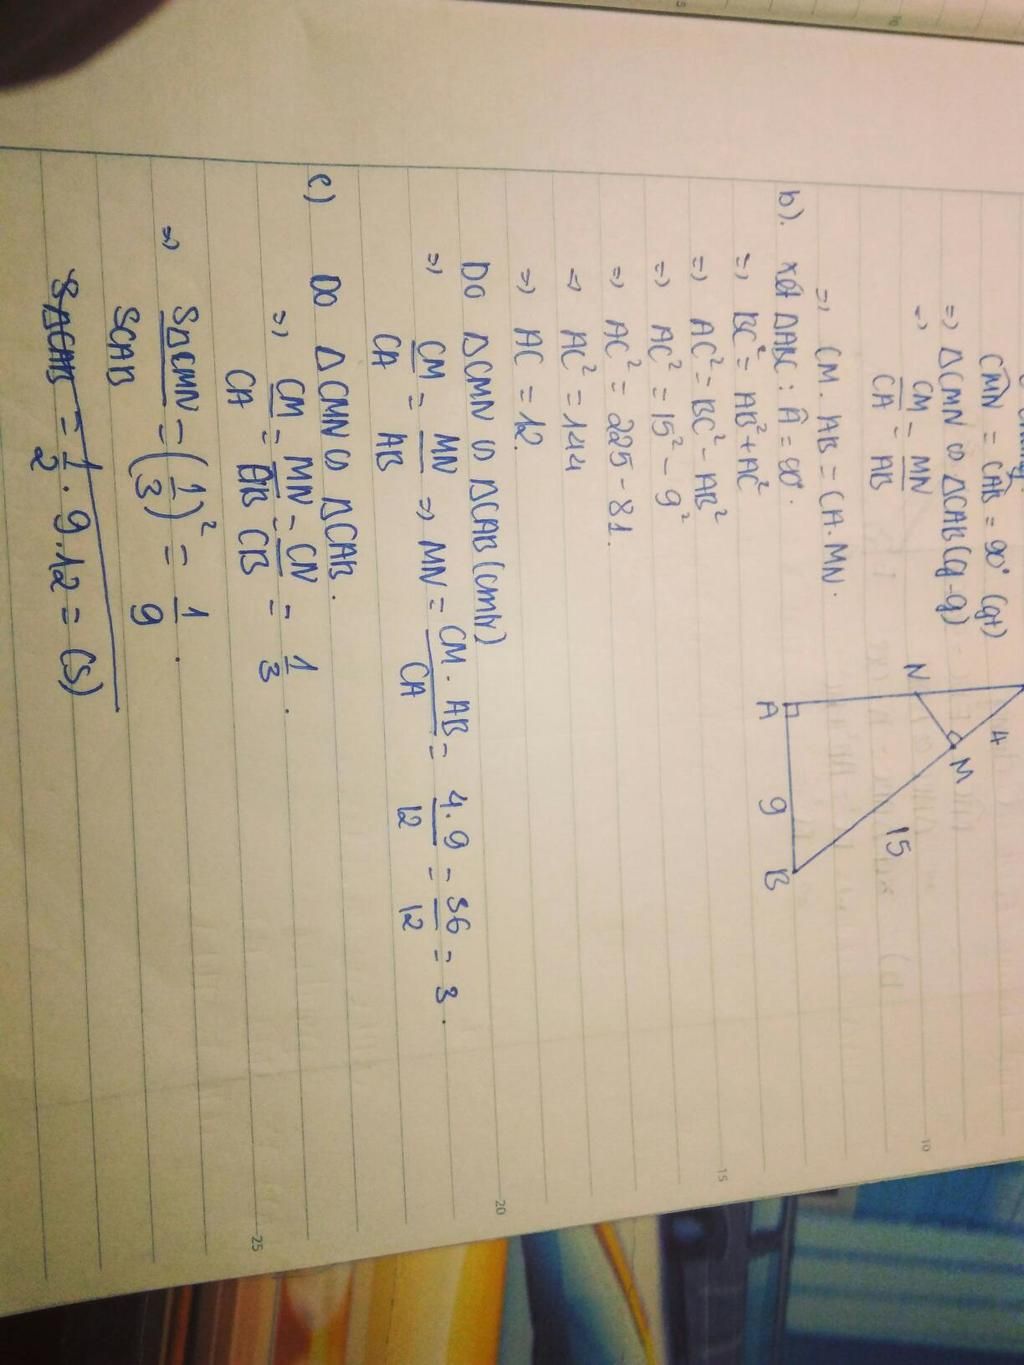 CMN = CAB = 90° (gt)
=> ΔCMN ∽ ΔCAB (g-g)
=> CM/CA = MN/AB
=> CM . AB = CA . MN.
C
4
N
M
15
A
9
B
b). xét ΔABC : Â = 90°.
=> BC² = AB² + AC²
=> AC² = BC² - AB²
=> AC² = 15² - 9²
=> AC² = 225 - 81.
=> AC² = 144
=> AC = 12.
Do ΔCMN ∽ ΔCAB (cmtr)
=> CM/CA = MN/AB => MN = CM . AB/CA = 4.9/12 = 36/12 = 3.
c) Do ΔCMN ∽ ΔCAB.
=> CM/CA = MN/AB = CN/CB = 1/3.
=> SΔCMN/SCAB = (1/3)² = 1/9.
SΔCAB = 1/2 . 9.12 = (S)
10
15
20
25